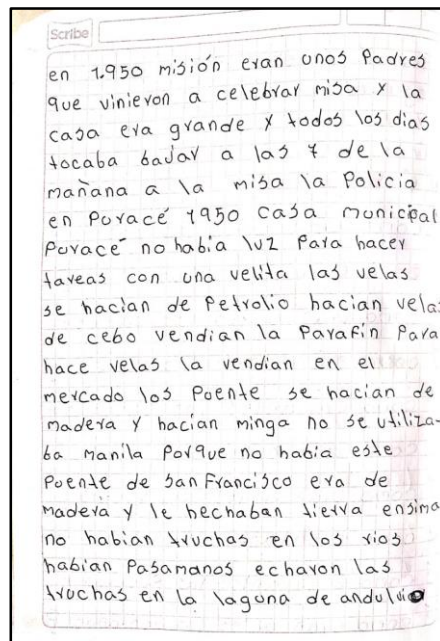 Scribe
en 1.950 misión eran unos Padres
que vinieron a celebrar misa y la
casa era grande y todos los dias
tocaba bajar a las 7 de la
mañana a la misa la Policia
en Puracé 1950 casa municipal
Puracé no habia luz Para hacer
tareas con una velita las velas
se hacian de Petrolio hacian velas
de cebo vendian la Parafin Para
hace velas la vendian en el
mercado los Puente se hacian de
madera y hacian minga no se utiliza-
ba manila Porque no habia este
Puente de San Francisco era de
madera y le hechaban tierra ensima
no habian truchas en los rios
habian Pasamanos echaron las
truchas en la laguna de